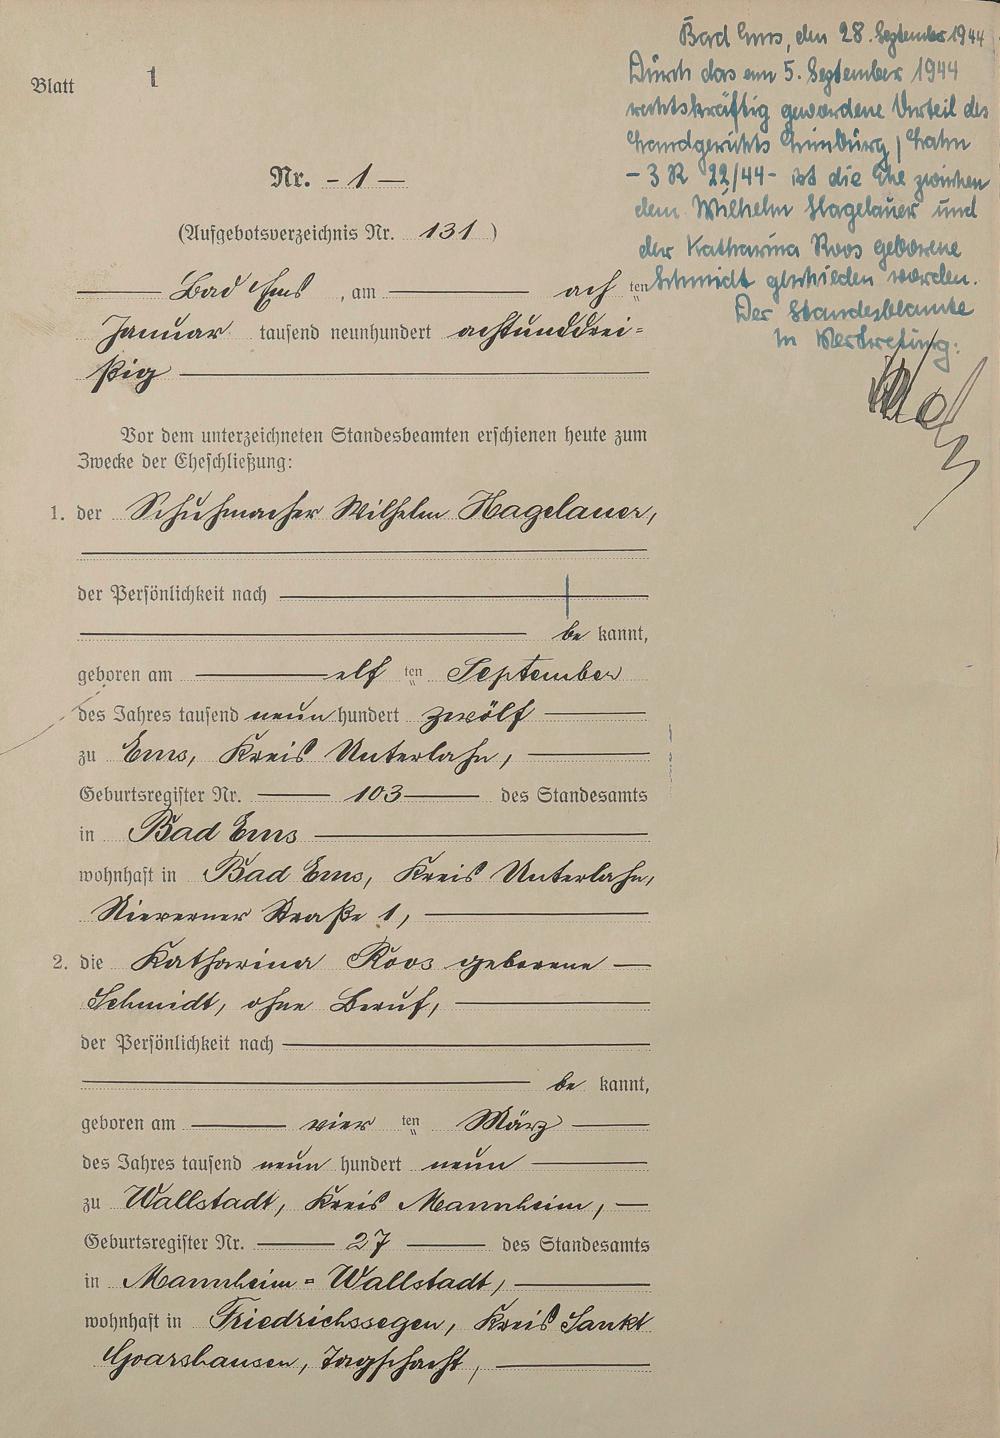 Blatt 1
Bad Ems, den 28. September 1944
Durch das am 5. September 1944
rechtskräftig gewordene Urteil des
Landgerichts Limburg / Lahn
- 3 R 22/44 - ist die Ehe zwischen
dem Wilhelm Hagelauer und
der Katharina Roos geborene
Schmidt geschieden worden.
Der Standesbeamte
In Vertretung:
Nr. - 1 -
(Aufgebotsverzeichnis Nr. 131)
Bad Ems, am ach ten
Januar tausend neunhundert achtunddrei=
ßig
Vor dem unterzeichneten Standesbeamten erschienen heute zum
Zwecke der Eheschließung:
1. der Schuhmacher Wilhelm Hagelauer,
der Persönlichkeit nach
be kannt,
geboren am elf ten September
des Jahres tausend neun hundert zwölf
zu Ems, Kreis Unterlahn,
Geburtsregister Nr. 103 des Standesamts
in Bad Ems
wohnhaft in Bad Ems, Kreis Unterlahn,
Nieverner Straße 1,
2. die Katharina Roos geborene
Schmidt, ohne Beruf,
der Persönlichkeit nach
be kannt,
geboren am vier ten März
des Jahres tausend neun hundert neun
zu Wallstadt, Kreis Mannheim,
Geburtsregister Nr. 27 des Standesamts
in Mannheim = Wallstadt,
wohnhaft in Friedrichssegen, Kreis Sankt
Goarshausen, Tagschacht,